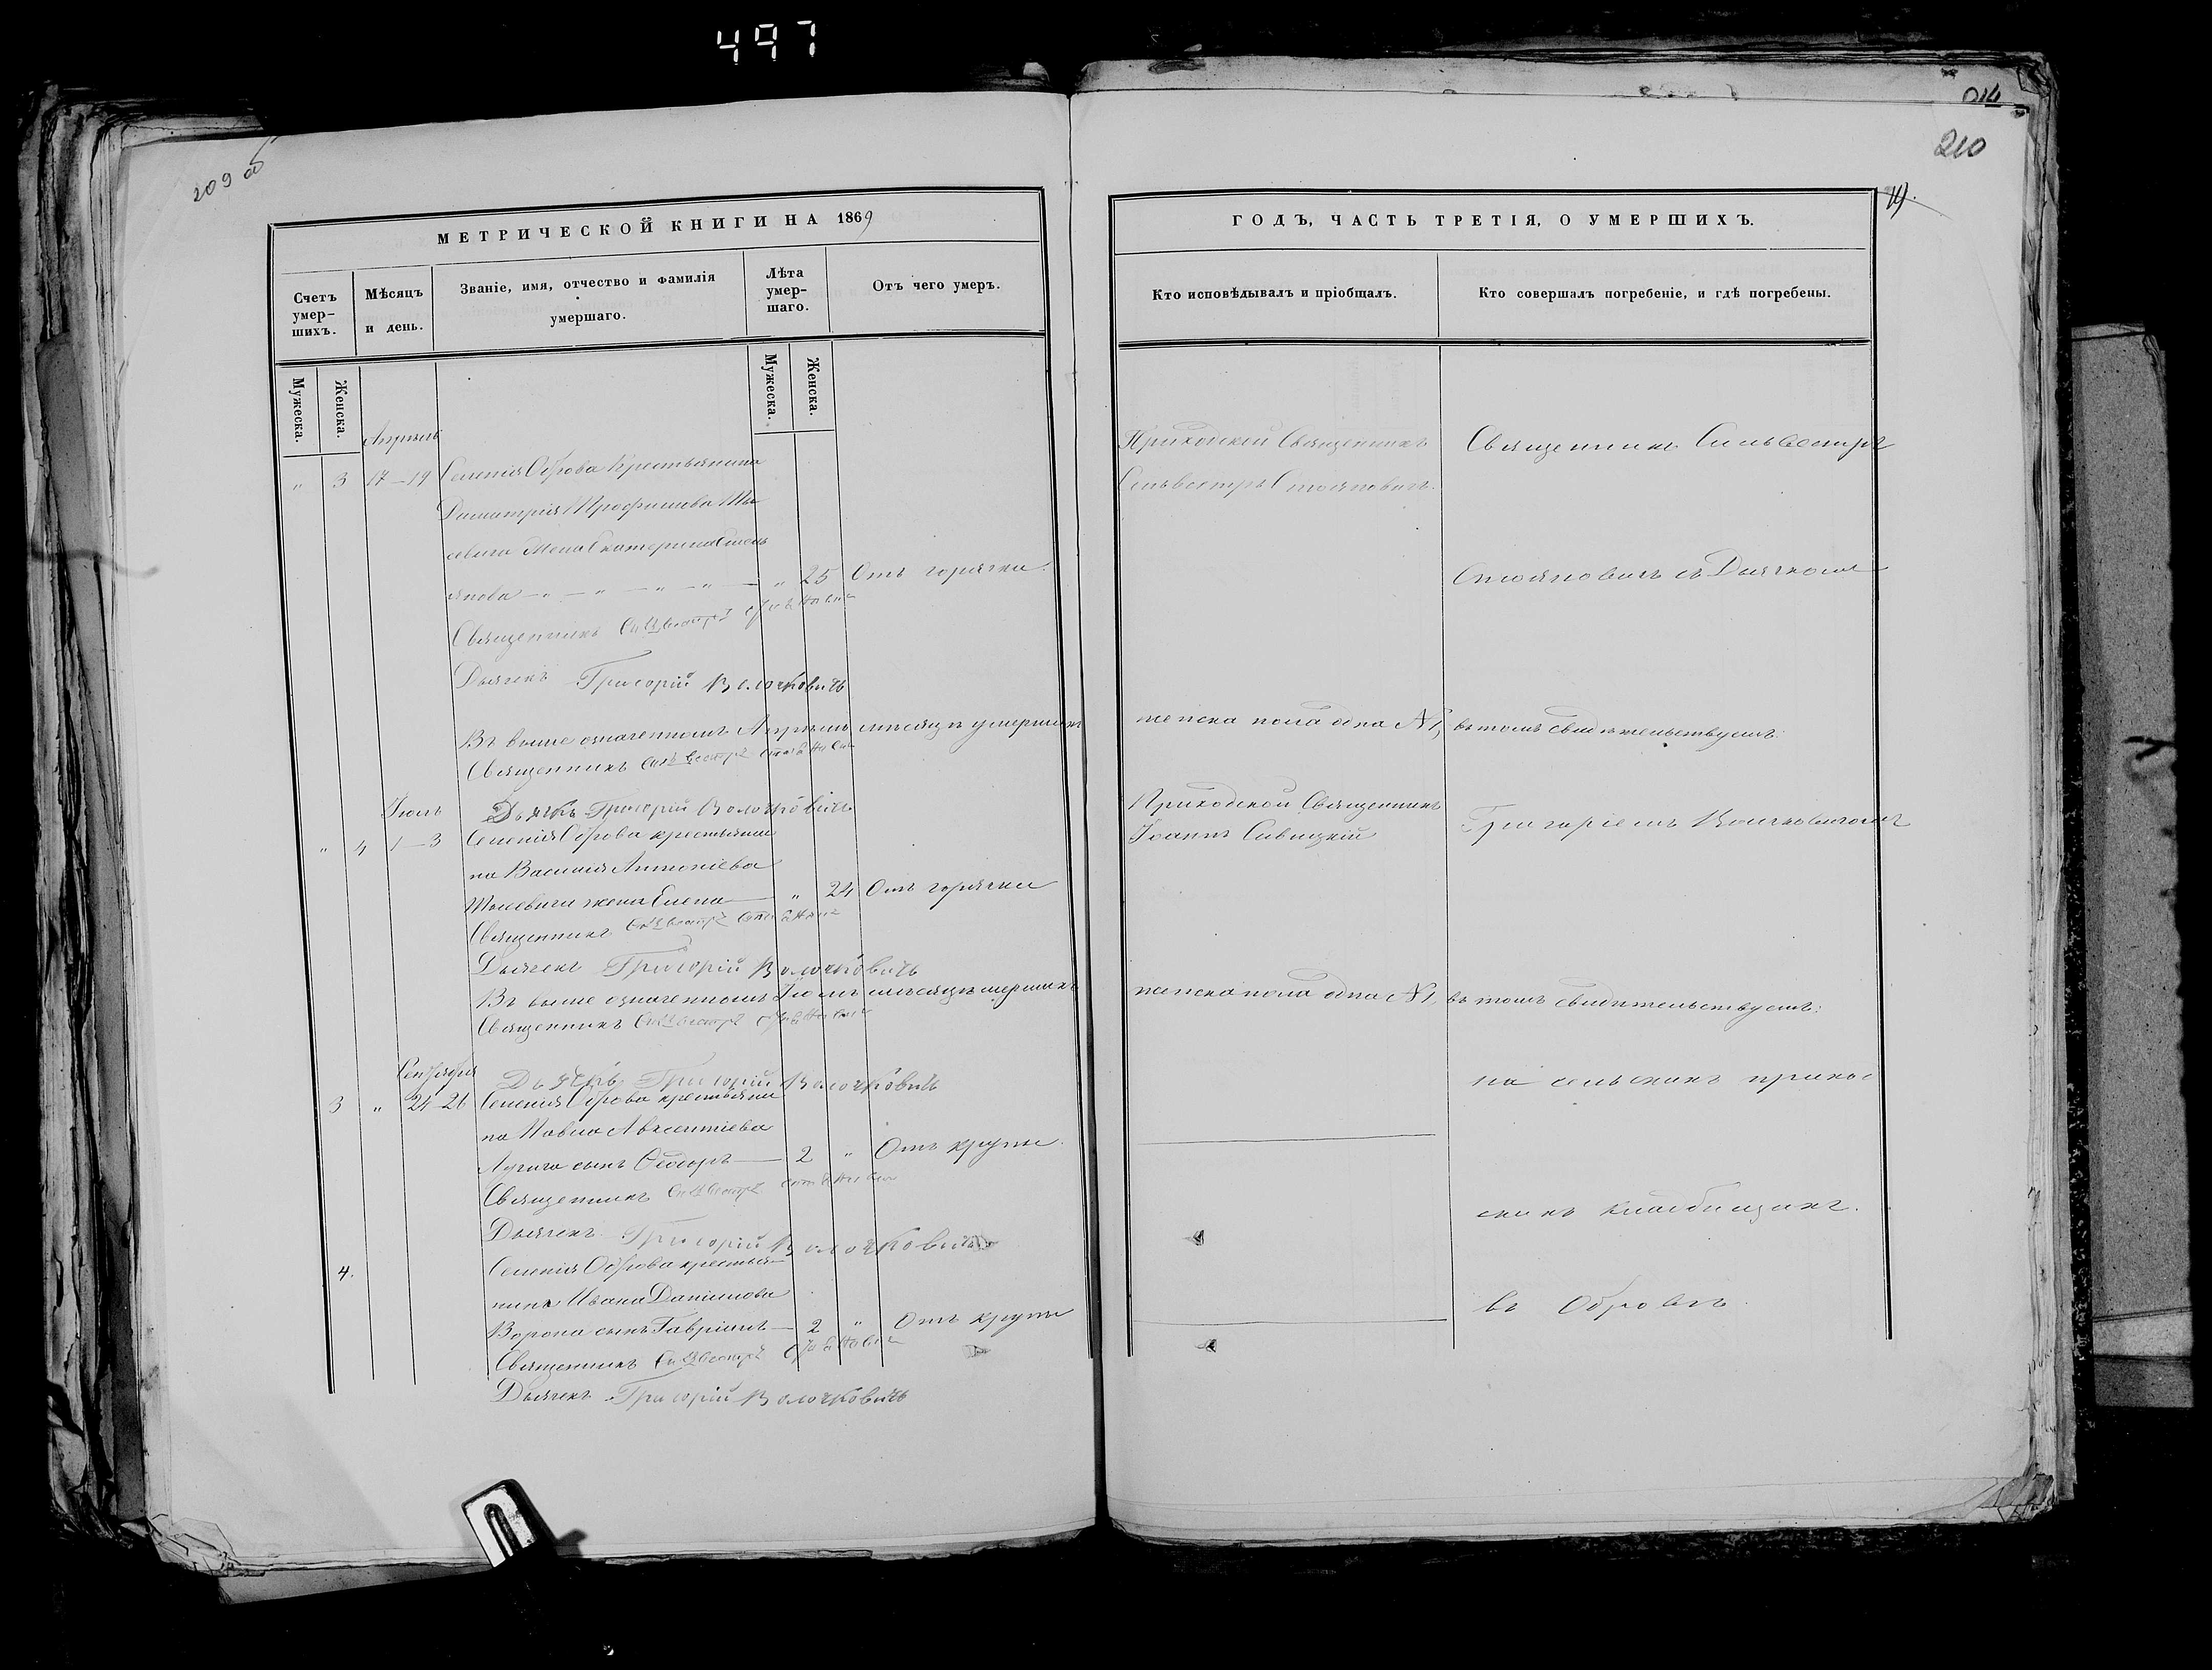 497
209 об
014
210
МЕТРИЧЕСКОЙ КНИГИ НА 1869
ГОДЪ, ЧАСТЬ ТРЕТІЯ, О УМЕРШИХЪ.
Счетъ умер-шихъ.
Мѣсяцъ и день.
Званіе, имя, отчество и фамилія умершаго.
Лѣта умер-шаго.
Отъ чего умеръ.
Кто исповѣдывалъ и пріобщалъ.
Кто совершалъ погребеніе, и гдѣ погребены.
Мужеска.
Женска.
Мужеска.
Женска.
Апрѣль
" 3 17–19 Селенія Оброва Крестьянина
Димитрія Трофимова
жена Екатерина
" 25 Отъ горячки.
Священникъ Сильвестръ
Дьячекъ Григорій Волочковичъ
Въ выше означенномъ Апрѣлѣ мѣсяцѣ умершихъ
женска пола одна №1, въ томъ свидѣтельствуемъ:
Священникъ Сильвестръ
Дьячекъ Григорій Волочковичъ
Приходской Священникъ
Сильвестръ Стояновичъ.
Священникъ Сильвестръ
Стояновичъ съ Дьячкомъ
Іюль
" 4 1–3 Селенія Оброва крестьяни
на Василія Антоніева
жена Елена — " 24 Отъ горячки
Священникъ Сильвестръ
Дьячекъ Григорій Волочковичъ
Въ выше означенномъ Іюлѣ мѣсяцѣ умершихъ
женска пола одна №1, въ томъ свидѣтельствуемъ:
Священникъ Сильвестръ
Дьячекъ Григорій Волочковичъ
Приходской Священникъ
Іоаннъ Савицкій
Григоріемъ
Сентябрь
3 " 24–26 Селенія Оброва крестьяни
на Павла Авксентіева
сынъ Ѳеодоръ — 2 " Отъ крупы.
Священникъ Сильвестръ
Дьячекъ Григорій Волочковичъ
на сельскихъ приход
4. Селенія Оброва крестья
нина Ивана Даніилова
Ворона сынъ Гавріилъ — 2 " Отъ крупы
Священникъ Сильвестръ
Дьячекъ Григорій Волочковичъ
скихъ кладбищахъ.
въ Обровѣ.